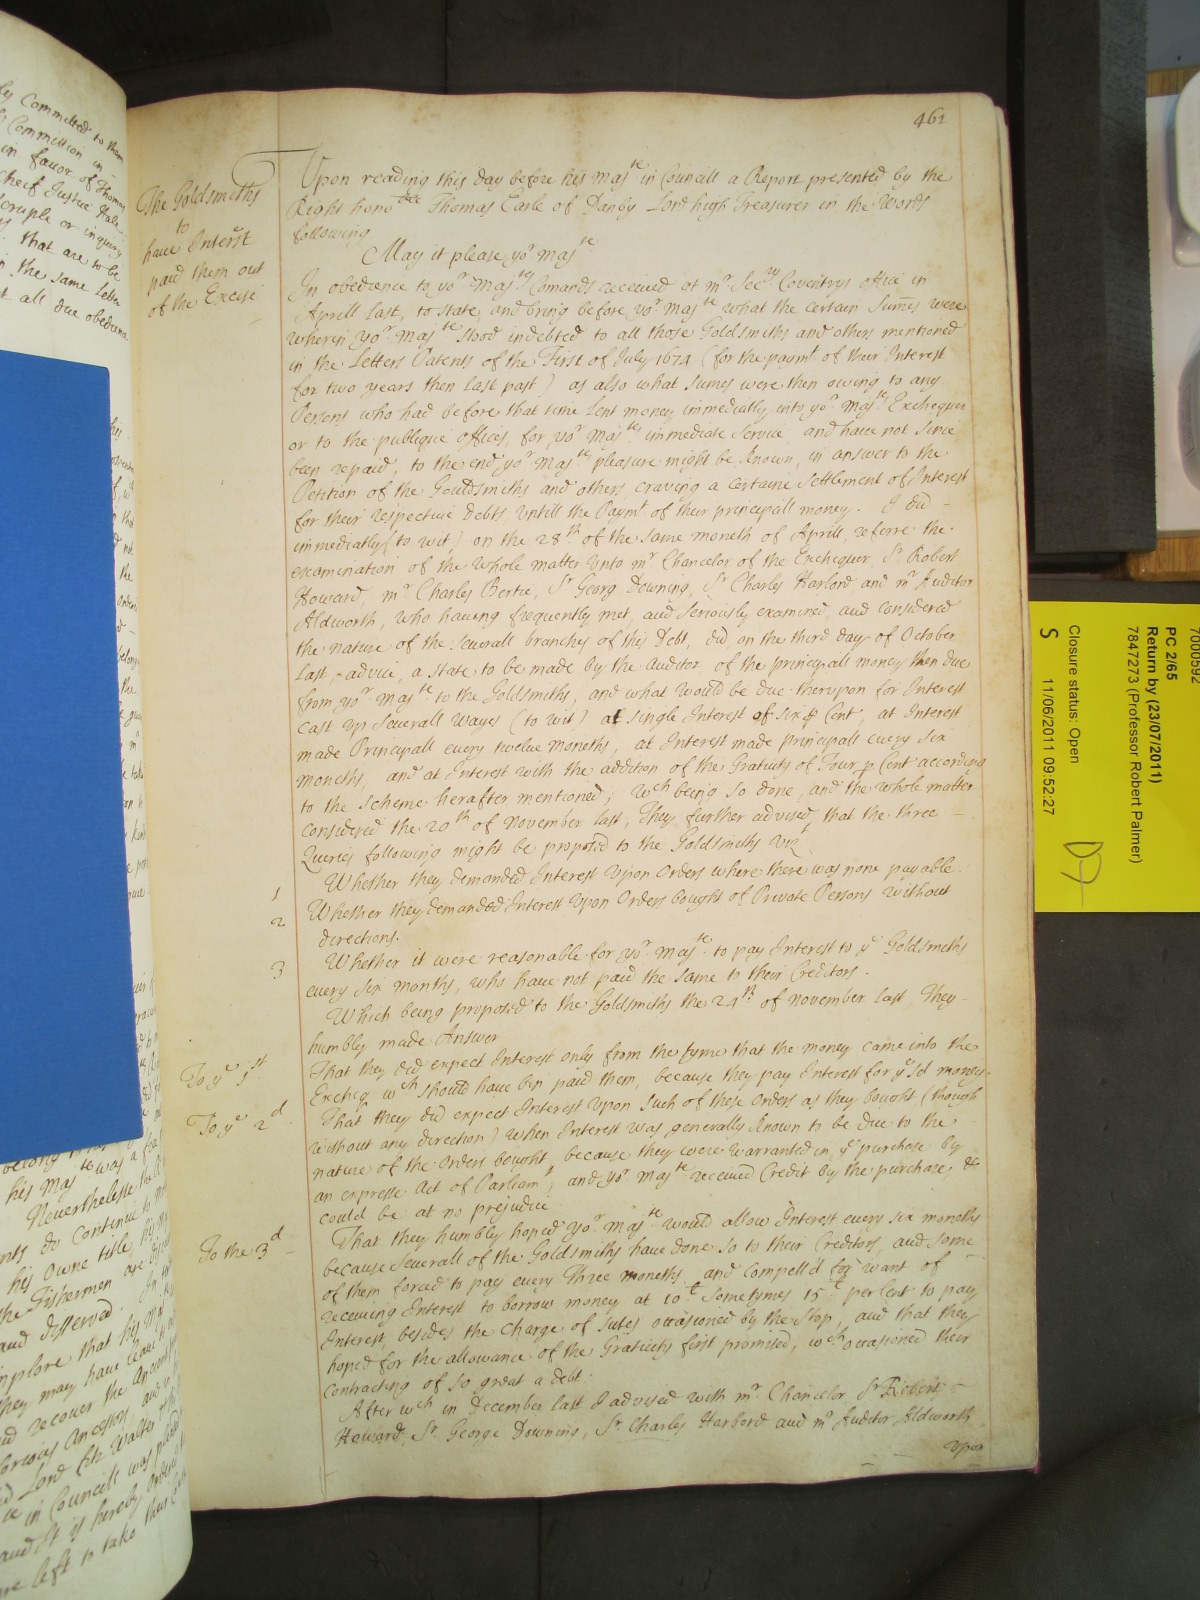 461
The Goldsmiths
to
have Interest
paid them out
of the Excise
Upon reading this day before his Maj^te in Councill a Report presented by the
Right hono^ble Thomas Earle of Danby Lord high Treasurer in the Words
following
May it please yo^r Maj^te
In obedience to yo^r Maj^tys Comands received at m^r Sec^ry Coventrys office in
Aprill last, to state, and bring before yo^r Maj^te what the certain Sumes were
wherein yo^r Maj^te stood indebted to all those Goldsmiths and others mentioned
in the Letters Patents of the First of July 1674 (for the paym^t of their Interest
for two years then last past) as also what Sumes were then owing to any
Persons who had before that time lent money immediatly into yo^r Maj^tes Exchequer
or to the publique offices, for yo^r Maj^tes immediate Service, and have not since
been repaid, to the end yo^r Maj^tes pleasure might be known, in answer to the
Petition of the Gouldsmiths and others, craving a certaine Settlement of Interest
for their respective Debts, untill the Paym^t of their principall money. I did -
immediatly (to wit) on the 28^th of the same moneth of Aprill, referre the
examination of the whole matter unto m^r Chancelor of the Exchequer, S^r Robert
Howard, m^r Charles Bertie, S^r Georg Downing, S^r Charles Harbord and m^r Auditor
Aldworth, who having frequently met, and seriously examined and considered
the nature of the severall branches of this Debt, did on the third day of October
last, advise, a state to be made by the Auditor of the principall money then due
from yo^r Maj^te to the Goldsmiths, and what would be due therupon for Interest
cast up severall wayes (to wit) at single Interest of six p Cent, at Interest
made Principall every twelve moneths, at Interest made principall every six
moneths, and at Interest with the addition of the Gratuity of Four p Cent according
to the scheme herafter mentioned; w^ch being so done, and the whole matter
considered the 20^th of November last, They further advised, that the three -
Queries following might be proposed to the Goldsmiths viz^t
1 Whether they demanded Interest upon orders where there was none payable.
2 Whether they demanded Interest upon Orders bought of Private Persons without
directions.
3 Whether it were reasonable for yo^r Maj^te to pay Interest to y^e Goldsmiths
every six months, who have not paid the same to their Creditors.
Which being proposed to the Goldsmiths the 24^th of november last, They -
humbly made Answer
To y^e 1^st That they did expect Interest only from the tyme that the money came into the
Excheq^r w^ch should have bin paid them, because they pay Interest for y^e s^d money.
To y^e 2^d That they did expect Interest upon such of these orders as they bought (though
without any direction) when Interest was generally known to be due to the
nature of the orders bought, because they were warranted in y^e purchase by
an expresse Act of Parliam^t, and yo^r Maj^te received Credit by the purchase, &
could be at no prejudice
To the 3^d - That they humbly hoped yo^r Maj^te would allow Interest every six moneths
because severall of the Goldsmiths have done so to their Creditors, and some
of them forced to pay every Three moneths, and compell'd for want of
receiving Interest to borrow money at 10 sometymes 15 per Cent to pay
Interest, besides the Charge of Sutes occasioned by the Stop, and that they
hoped for the allowance of the Gratuity first promised, w^ch occasioned their
contracting of so great a debt.
After w^ch in December last I advised with m^r Chancelor S^r Robert -
Howard, S^r George Downing, S^r Charles Harbord and m^r Auditor Aldworth
upon
7000592
PC 2/65
Return by (23/07/2011)
7847273 (Professor Robert Palmer)
Closure status: Open
S 11/06/2011 09:52:27
ly Committed to them
Commission in -
in favor of Thomas
cheif Justice Hale
scruple or inquiry
that are to be
in the same letter
all due obedience
his Maj^te was a
Nevertheless
do Continue to
his owne title
the Fishermen are
and disserved. In
implore that his Maj
they may have leave to
and recover the Ancient
Ancestors and
Lord Fitz Walter
in Councill was pleased
and It is hereby Ordered
are left to take their